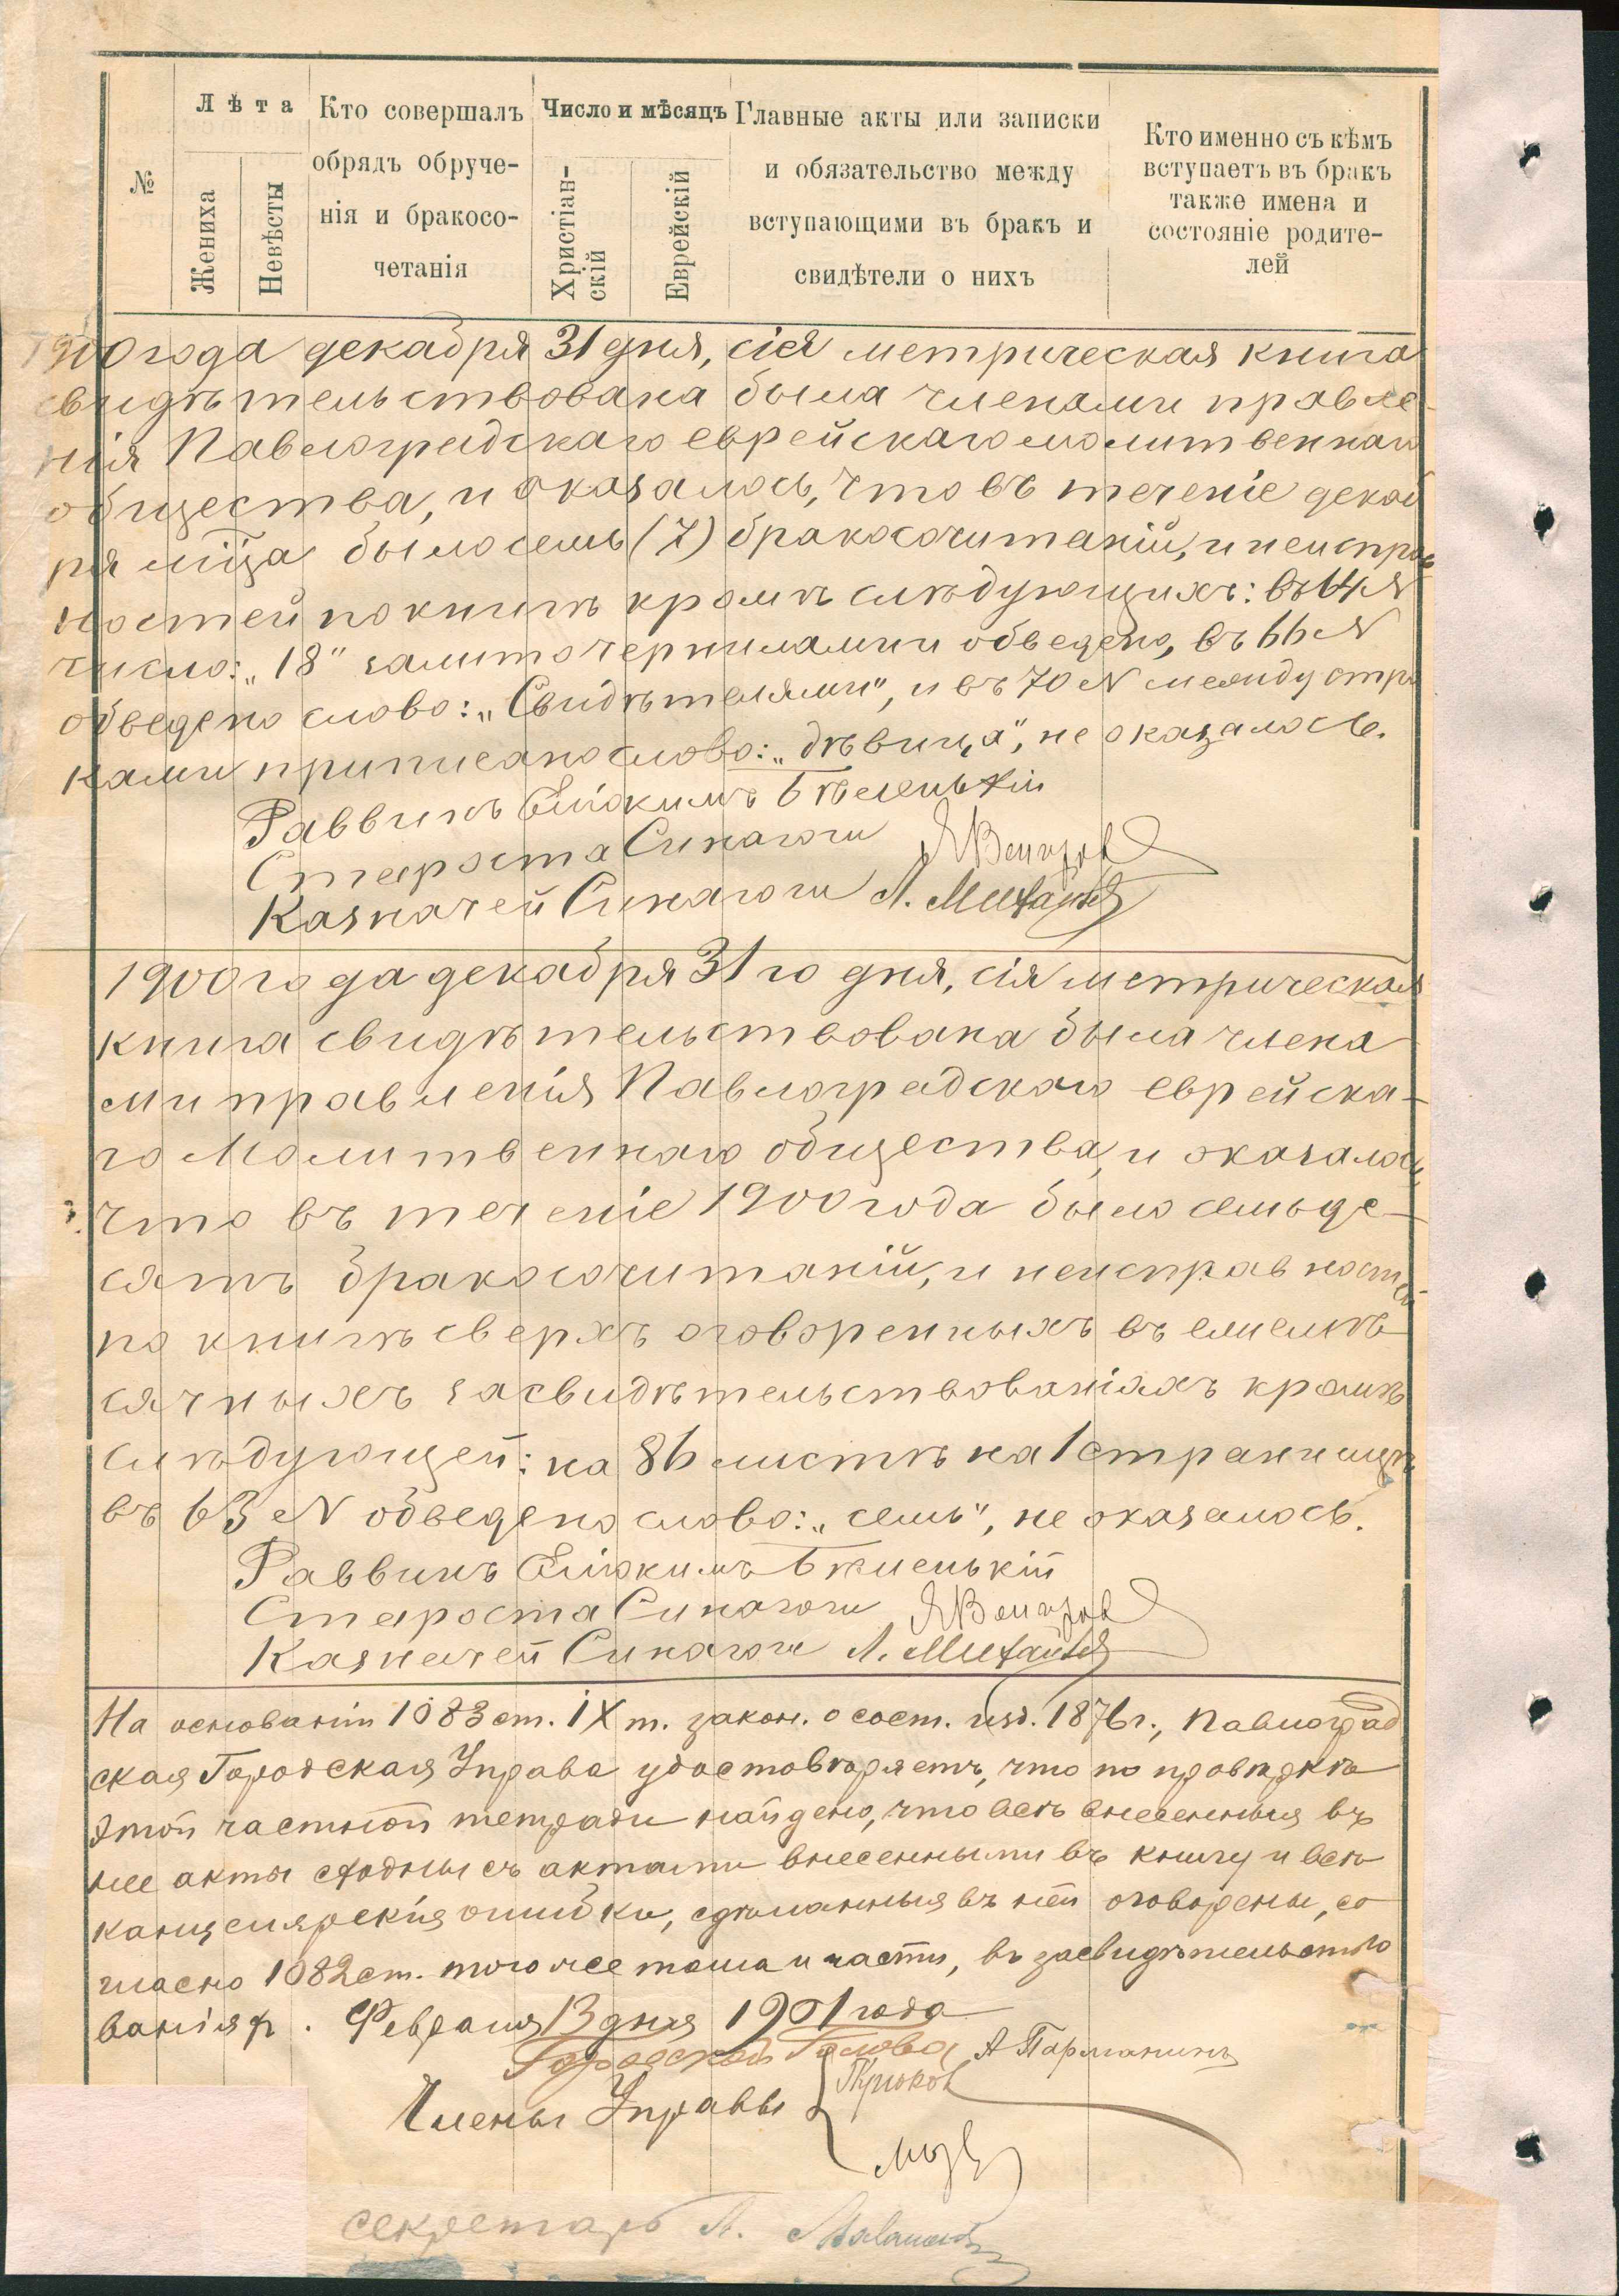 №
Лѣта
Жениха
Невѣсты
Кто совершалъ
обрядъ обруче-
нія и бракосо-
четанія
Число и мѣсяцъ
Христіан-
скій
Еврейскій
Главные акты или записки
и обязательство между
вступающими въ бракъ и
свидѣтели о нихъ
Кто именно съ кѣмъ
вступаетъ въ бракъ
также имена и
состояніе родите-
лей
1900 года декабря 31 дня, сія метрическая книга
свидѣтельствована была членами правле-
нія Павлоградскаго еврейскаго молитвеннаго
общества, и оказалось, что въ теченіе декаб
ря мѣца было семь (7) бракосочитаній, и неисправ
ностей по книгѣ кромѣ слѣдующихъ: въ 64 N
число: „18" залито чернилами и обведено, въ 66 N
обведено слово: „Свидѣтелями", и въ 70 N между стро
ками приписано слово: „дѣвица", не оказалось.
Раввинъ Еліокимъ Бѣленькій
Староста Синагоги
Казначей Синагоги Л.
1900 года декабря 31го дня, сія метрическая
книга свидѣтельствована была члена
ми правленія Павлоградскаго еврейска-
го Молитвеннаго общества, и оказалось,
что въ теченіе 1900 года было семьде-
сятъ бракосочитаній, и неисправностей
по книгѣ сверхъ оговоренныхъ въ ежемѣ
сячныхъ засвидѣтельствованіяхъ кромѣ
слѣдующей: на 86 листѣ на 1 странницѣ
въ 63 N обведено слово: „семь", не оказалось.
Раввинъ Еліокимъ Бѣленькій
Староста Синагоги
Казначей Синагоги Л.
На основаніи 1083 ст. IX т. закон. о сост. изд. 1876 г., Павлоград
ская Городская Управа удостовѣряетъ, что по провѣркѣ
этой частной тетради найдено, что всѣ внесенныя въ
нее акты сходны съ актами внесенными въ книгу и всѣ
канцелярскія ошибки, сдѣланныя въ ней оговорены, со
гласно 1082 ст. того же тома и части, въ засвидѣтельство
ваніяхъ. Февраля 13 дня 1901 года
Городской Голова А
Члены Управы Крюков
секретарь